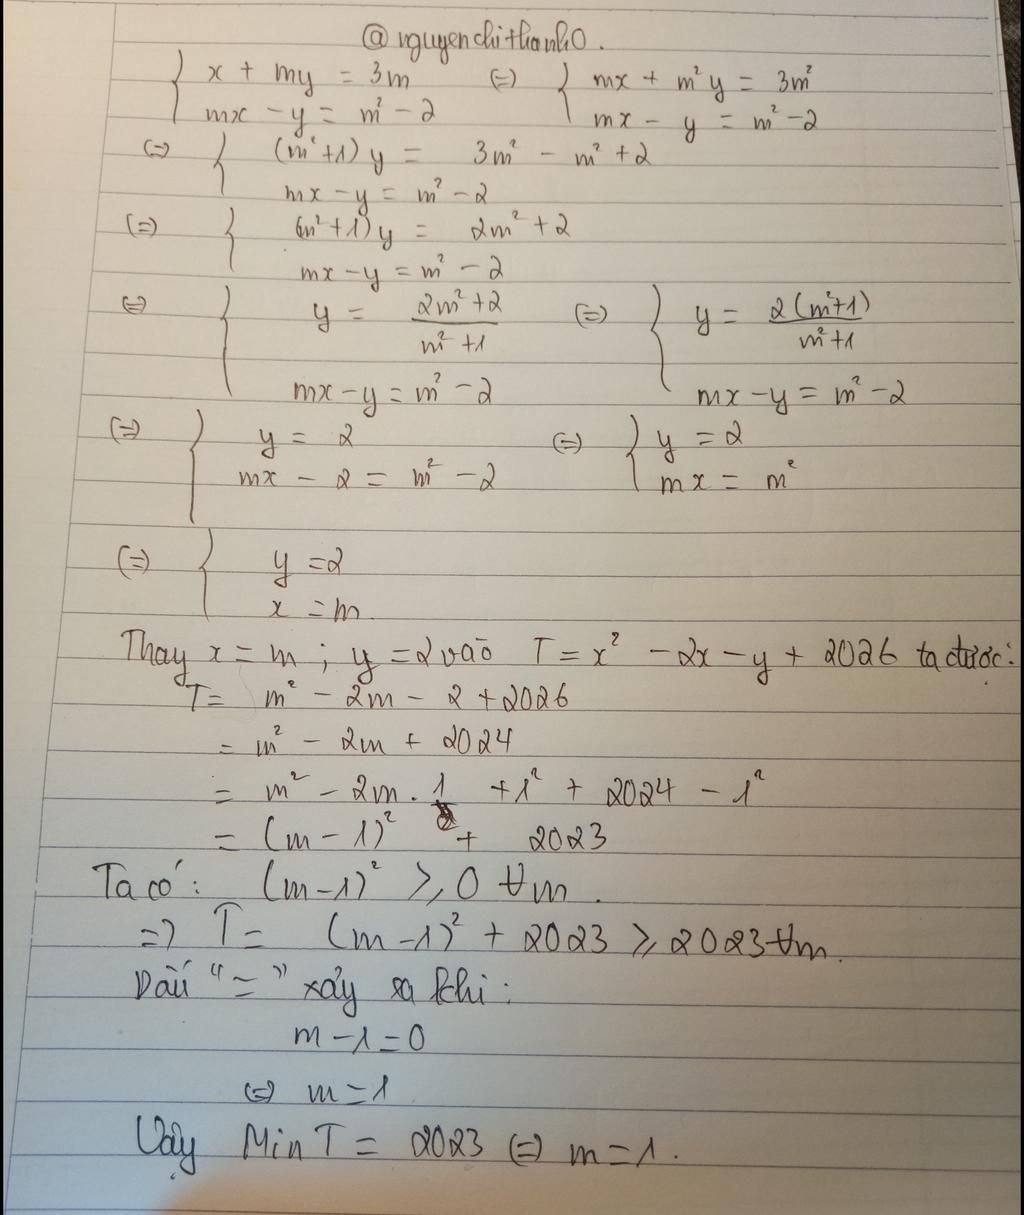 @nguyenchithanh0.
{ x + my = 3m (=) { mx + m²y = 3m²
mx - y = m² - 2 mx - y = m² - 2
(=) { (m²+1)y = 3m² - m² + 2
mx - y = m² - 2
(=) { (m²+1)y = 2m² + 2
mx - y = m² - 2
(=) { y = (2m²+2)/(m²+1) (=) { y = 2(m²+1)/(m²+1)
mx - y = m² - 2 mx - y = m² - 2
(=) { y = 2 (=) { y = 2
mx - 2 = m² - 2 mx = m²
(=) { y = 2
x = m
Thay x = m ; y = 2 vào T = x² - 2x - y + 2026 ta được:
T = m² - 2m - 2 + 2026
= m² - 2m + 2024
= m² - 2m . 1 + 1² + 2024 - 1²
= (m - 1)² + 2023
Ta có: (m-1)² ≥ 0 ∀m.
=> T = (m-1)² + 2023 ≥ 2023 ∀m.
Dấu "=" xảy ra khi:
m - 1 = 0
(=) m = 1
Vậy Min T = 2023 (=) m = 1.